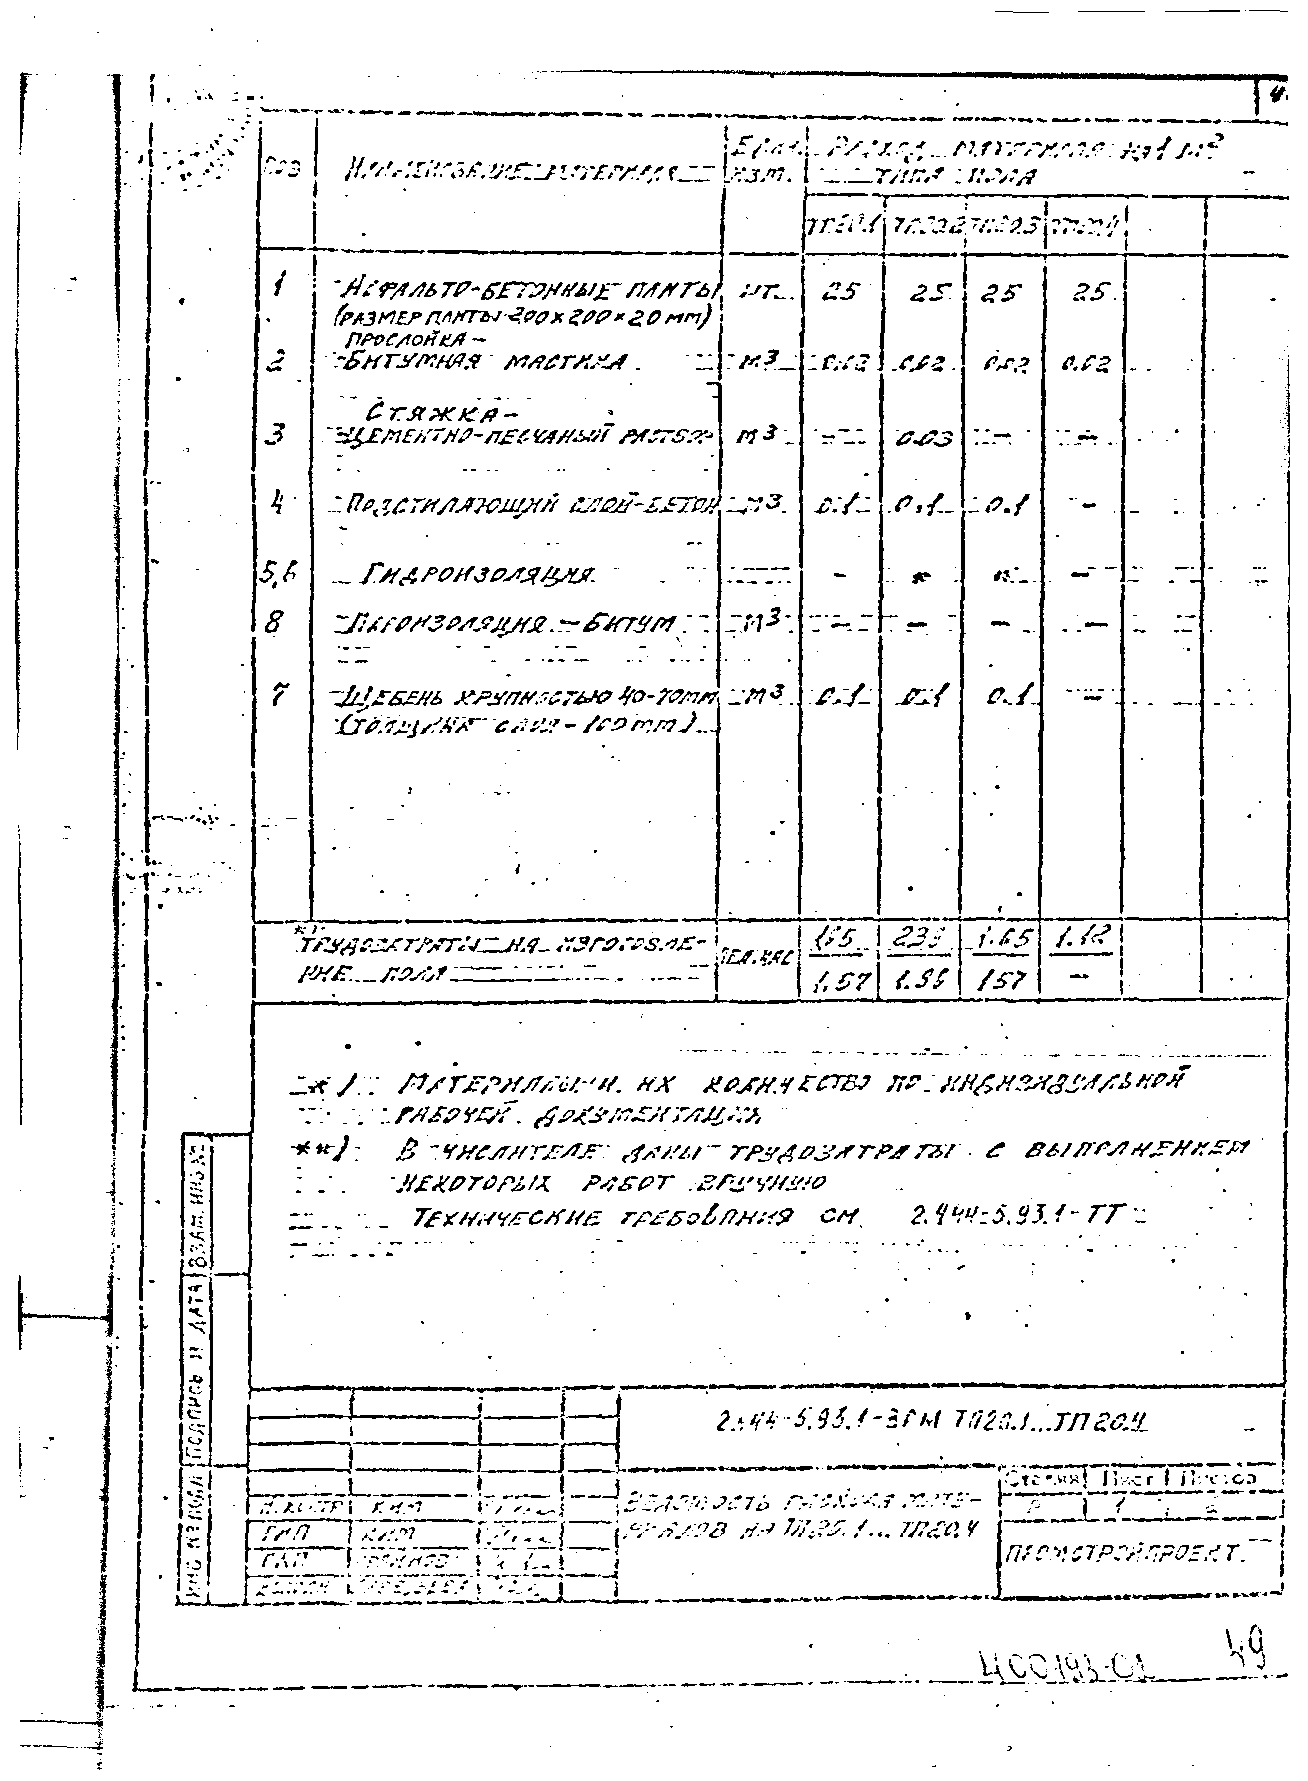 Поз
Наименование материала
Един. изм.
Расход материала на 1 м²
типа пола
ТП20.1 ТП20.2 ТП20.3 ТП20.4
1 Асфальто-бетонные плиты шт. 25 25 25 25
(размер плиты 200×200×20мм)
Прослойка –
2 битумная мастика м3 0.02 0.02 0.02 0.02
Стяжка –
3 цементно-песчаный раствор м3 – 0.03 – –
4 Подстилающий слой-бетон м3 0.1 0.1 0.1 –
5,6 Гидроизоляция – * * –
8 Пароизоляция – битум м3 – – – –
7 Щебень крупностью 40-70мм м3 0.1 0.1 0.1 –
(толщина слоя – 100мм)
Трудозатраты на изготовле- чел.час 1.65
ние пола 1.57 157 –
*) Материалы и их количество по индивидуальной
рабочей документации
**) В числителе даны трудозатраты с выполнением
некоторых работ вручную
Технические требования см. 2.444-5.93.1-ТТ
ВЗАМ. ИНВ.№
ПОДПИСЬ И ДАТА
ИНВ № ПОДЛ
2.444-5.93.1-ВРМ ТП20.1...ТП20.4
Н.контр Ким
ГИП Ким
Ведомость расхода мате-
риалов на ТП20.1...ТП20.4
Стадия Лист Листов
Р 1
ПРОМСТРОЙПРОЕКТ
49